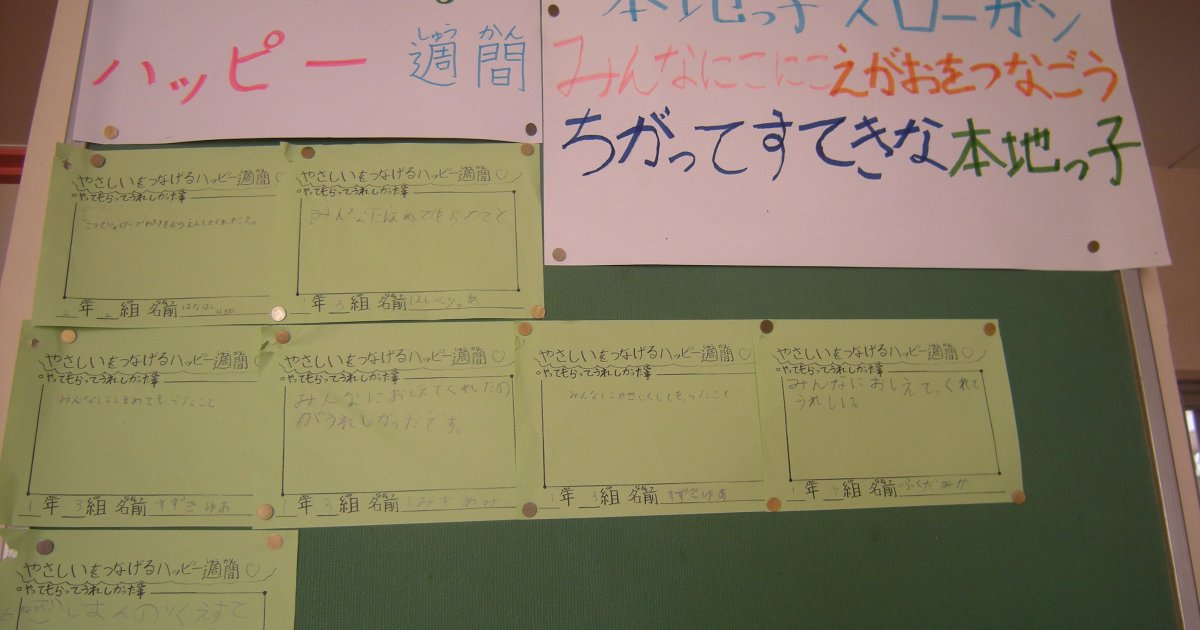 ハッピー 週間
しゅう かん
本地っ子 スローガン
みんなにこにこえがおをつなごう
ちがってすてきな本地っ子
やさしいをつなげるハッピー週間♡
○やってもらってうれしかった事
年 組 名前
やさしいをつなげるハッピー週間♡
○やってもらってうれしかった事
みんなにほめてもらたこと
1年 3組 名前
やさしいをつなげるハッピー週間♡
○やってもらってうれしかった事
1年 3組 名前 すずきゆあ
やさしいをつなげるハッピー週間♡
○やってもらってうれしかった事
みんなにおしえてくれたの
がうれしかったです。
1年 3組 名前
やさしいをつなげるハッピー週間♡
○やってもらってうれしかった事
みんなにやさしくしてもらたこと
1年 3組 名前 すずきゆあ
やさしいをつなげるハッピー週間♡
○やってもらってうれしかった事
みんなにおしえてくれて
うれしい。
1年 3組 名前 ふくだみか
やさしいをつなげるハッピー週間♡
○やってもらってうれしかった事